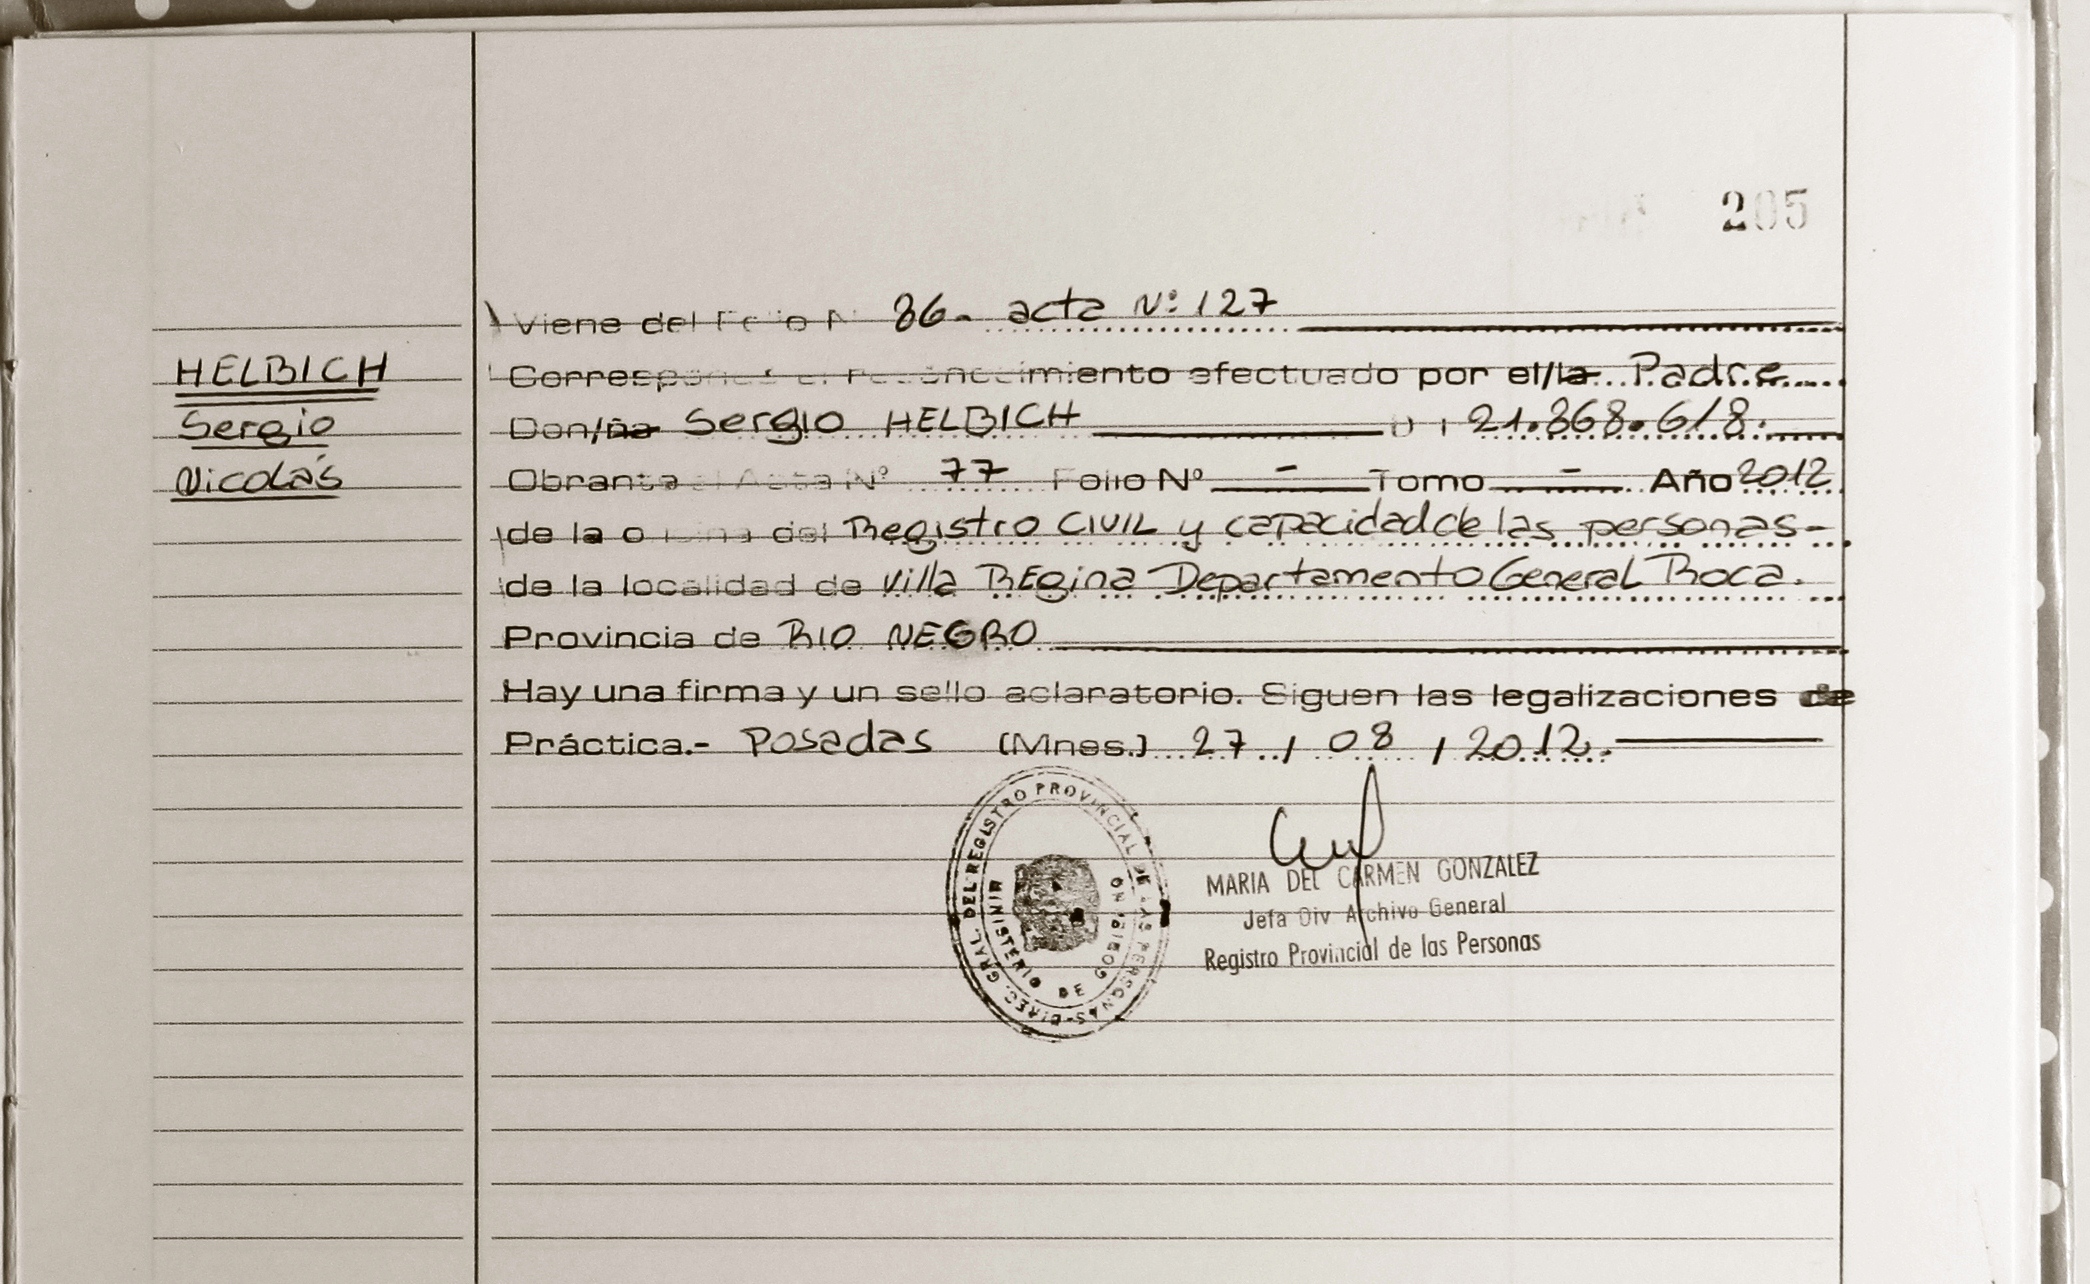 205
Viene del Folio N° 86- acta N°: 127
HELBICH
Sergio
Nicolás
Corresponde al reconocimiento efectuado por el/la Padre
Don/ña Sergio HELBICH D I 21.868.618.
Obrante al Acta N° 77 Folio N° - Tomo - Año 2012
de la oficina del Registro CIVIL y capacidad de las personas-
de la localidad de Villa REgina Departamento General Roca.
Provincia de RIO NEGRO
Hay una firma y un sello aclaratorio. Siguen las legalizaciones de
Práctica.- Posadas (Mnes.) 27 / 08 / 2012.
DIREC. GRAL. DEL REGISTRO PROVINCIAL DE LAS PERSONAS-
MINISTERIO DE GOBIERNO
MARIA DEL CARMEN GONZALEZ
Jefa Div Archivo General
Registro Provincial de las Personas